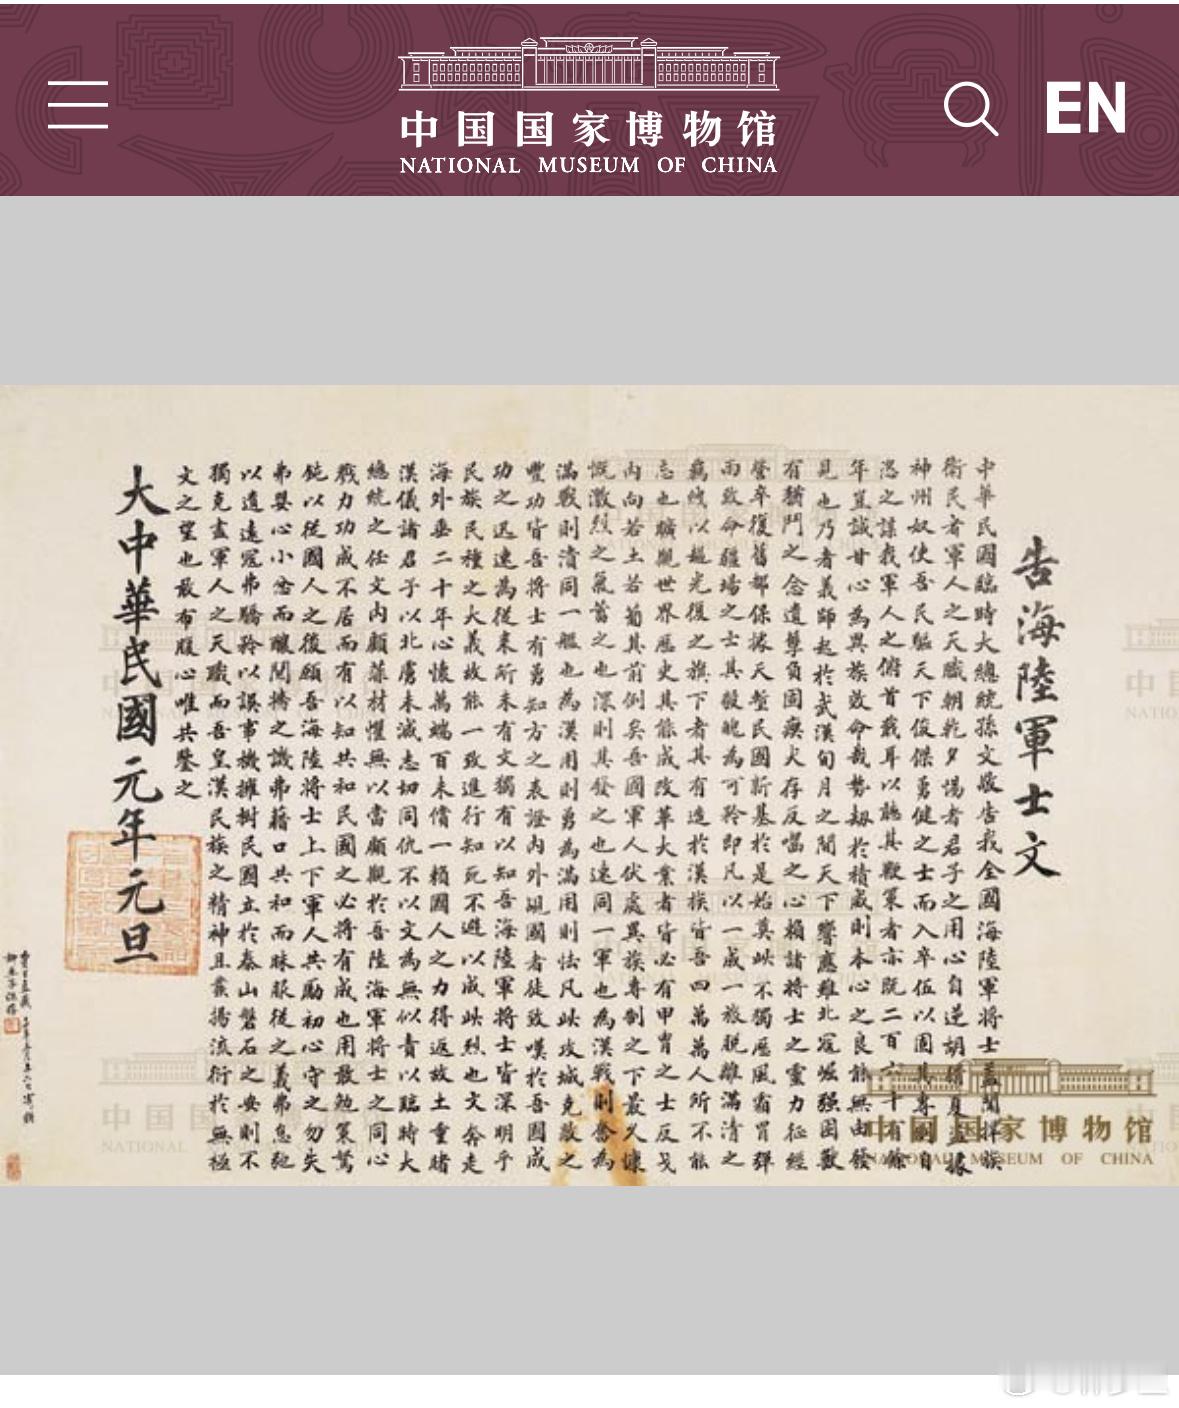 中国国家博物馆
NATIONAL MUSEUM OF CHINA
EN
告海陸軍士文
中華民國臨時大總統孫文敬告我全國海陸軍將士蓋聞捍族
衛民者軍人之天職朝乾夕惕者君子之用心自逆胡猾夏盜據
神州奴使吾民驅天下俊傑勇健之士而入卒伍以固其專制自
恣之謀我軍人之俯首戢耳以聽其鞭策者亦既二百六十有餘
年豈誠甘心為異族效命哉勢劫於積威則本心之良能無由發
見也乃者義師起於武漢旬月之間天下響應雖北寇崛强困獸
有猶鬥之念遺孽負固瘈犬存反噬之心賴諸將士之靈力征經
營卒復舊都保據天塹民國新基於是始奠此不獨歷風霜冒彈
雨致命疆場之士其毅魄為可矜即凡以一成一旅脫離滿清之
羈紲以趨光復之旗下者其有造於漢族皆吾四萬萬人所不能
忘也曠觀世界歷史其能成改革大業者皆必有甲冑之士反戈
內向若土若葡其前例矣吾國軍人伏處異族專制之下最久慷
慨激烈之氣蓄之也深則其發之也速同一軍也為漢戰則奮為
滿戰則潰同一艦也為漢用則勇為滿用則怯凡此攻城克敵之
豐功皆吾將士有勇知方之表證內外覘國者徒致嘆於吾國成
功之迅速為從來所未有文獨有以知吾海陸軍將士皆深明乎
民族民種之大義故能一致進行知死不避以成此烈也文奔走
海外垂二十年心懷萬端百未償一賴國人之力得返故土重睹
漢儀諸君子以北虜未滅志切同仇不以文為無似責以臨時大
總統之任文內顧菲材懼無以當顧觀於吾陸海軍將士之同心
戮力功成不居而有以知共和民國之必將有成也用敢勉策駑
鈍以從國人之後願吾海陸將士上下軍人共勵初心守之勿失
弗嬰心小忿而釀鬩牆之譏弗藉口共和而昧服從之義弗怠弛
以遺遠寇弗驕矜以誤事機擁樹民國立於泰山磐石之安則不
獨克盡軍人之天職而吾皇漢民族之精神且發揚流衍於無極
文之望也敢布腹心唯共鑒之
大中華民國元年元旦
中国国家博物馆
NATIONAL MUSEUM OF CHINA